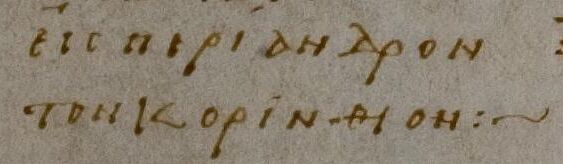 εἰς περίανδρον
τον κορίνθιον:~